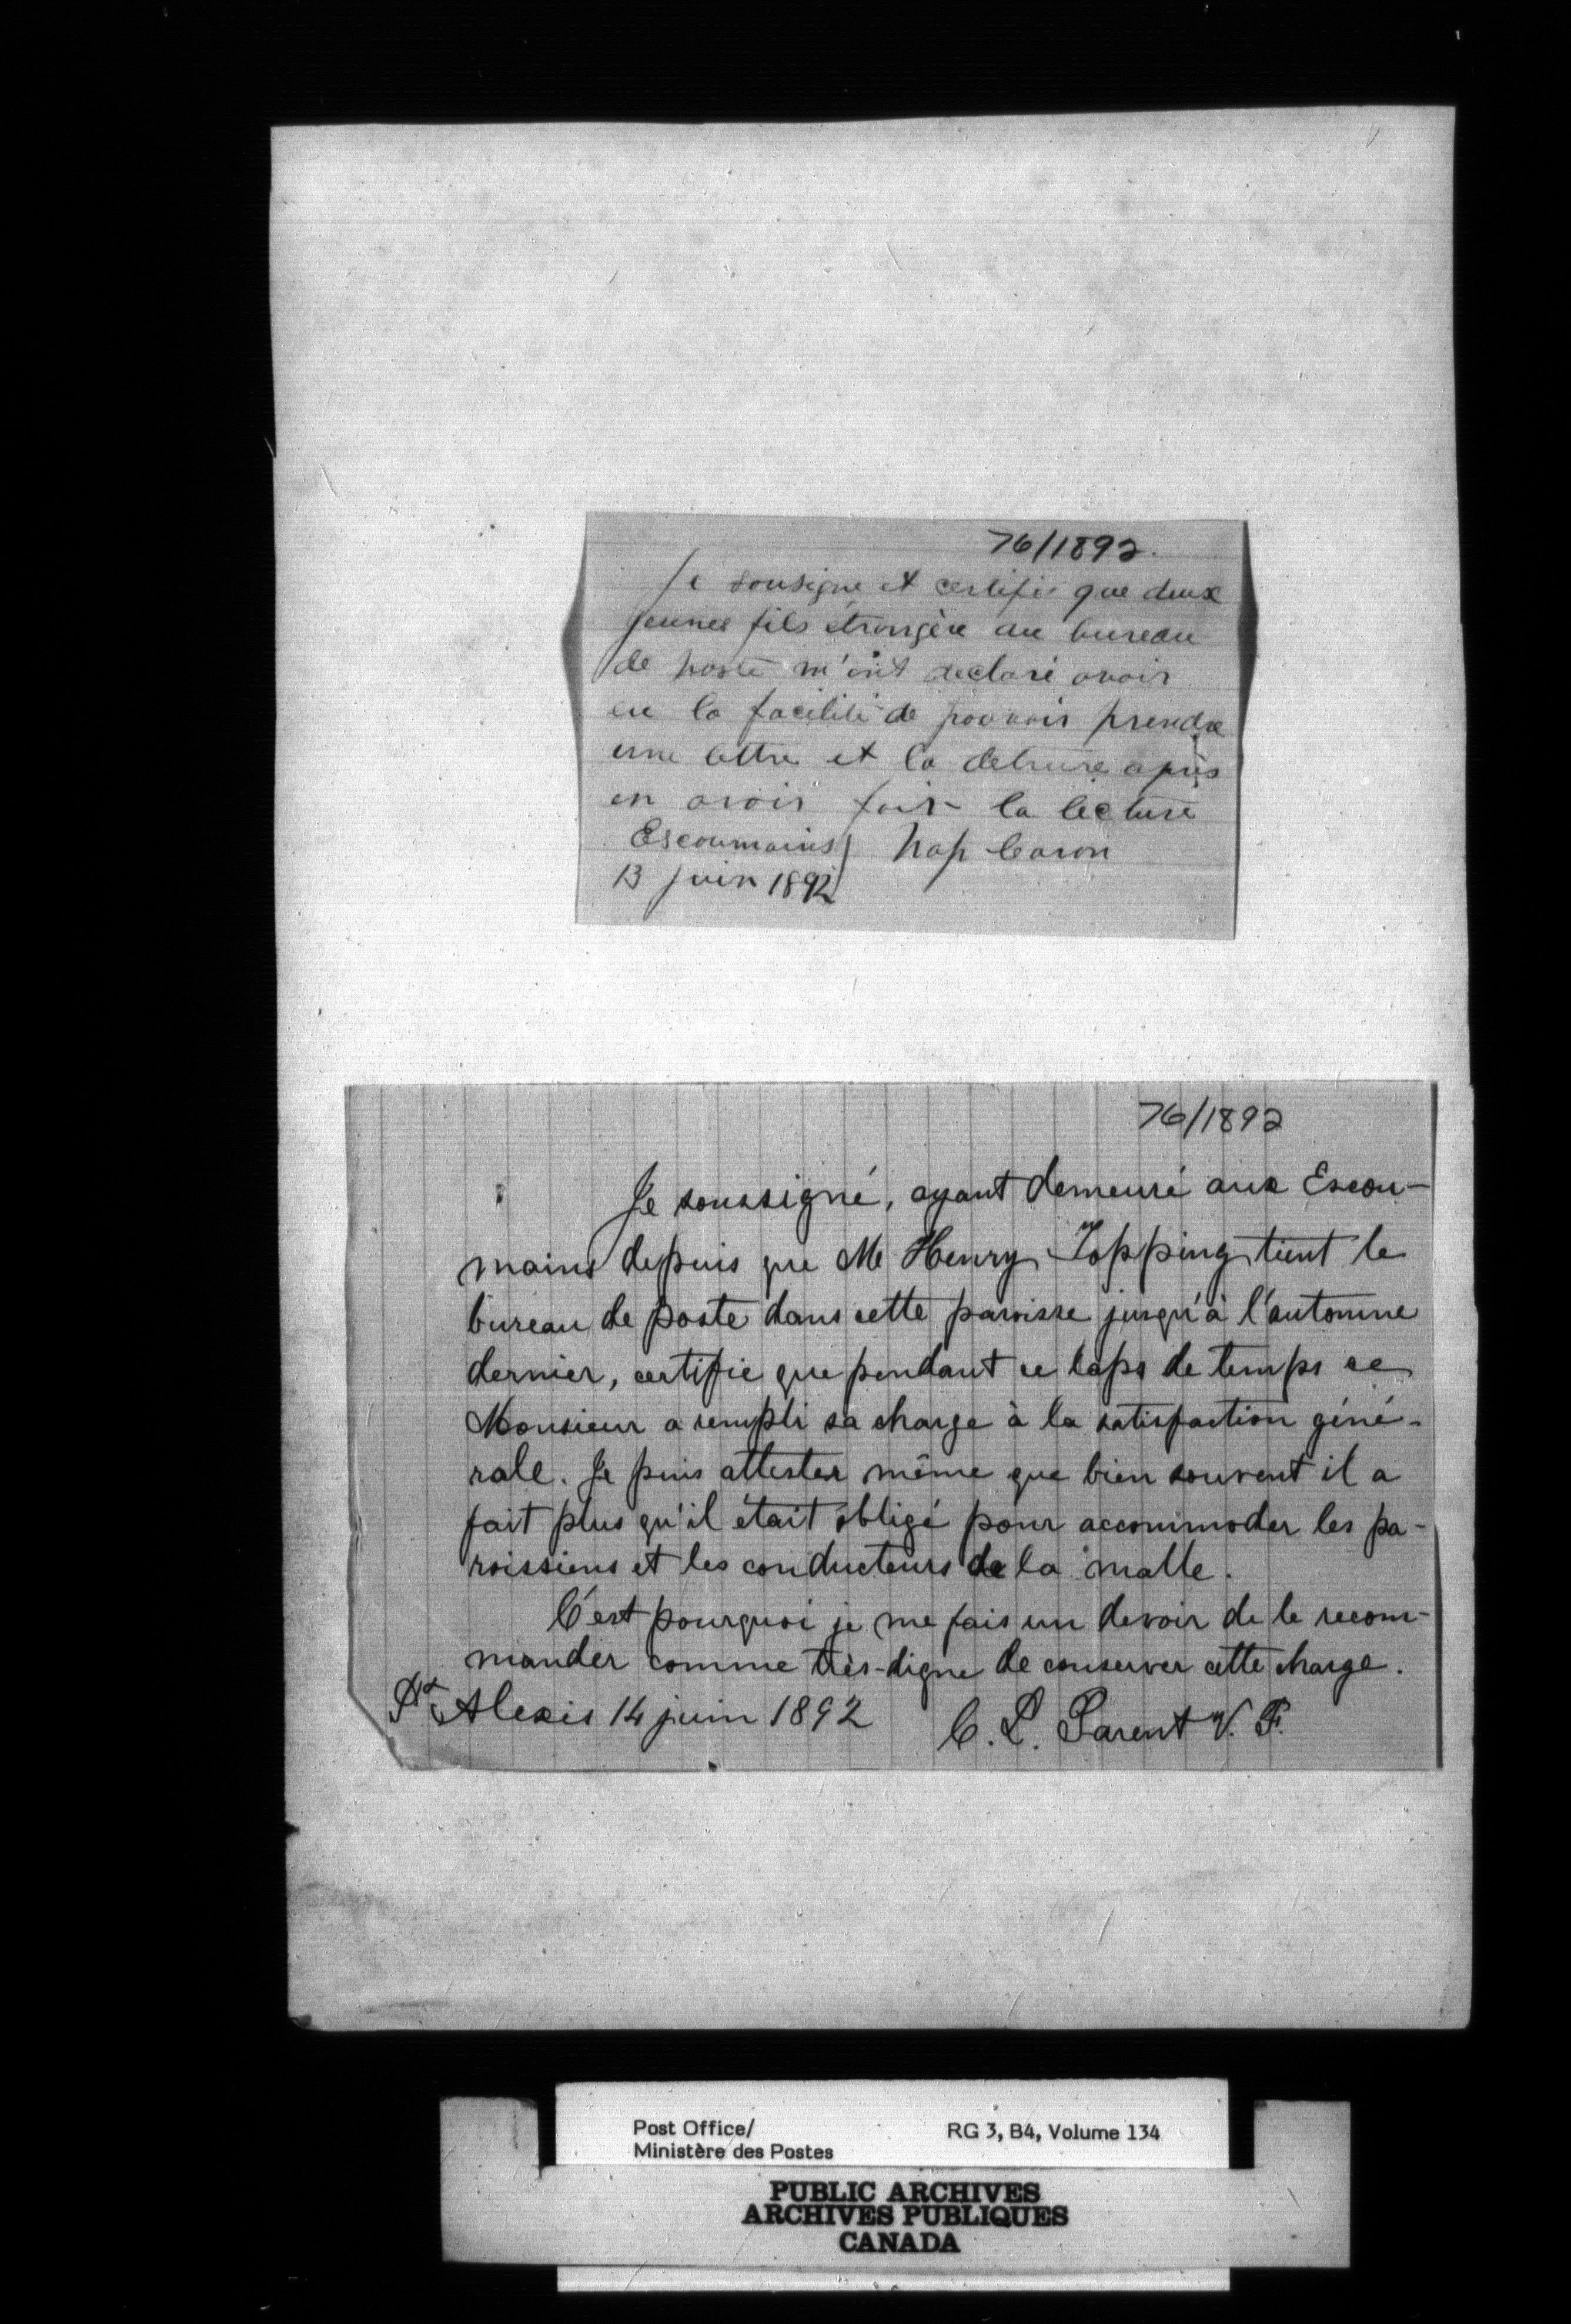 76/1892.
Je sousigne et certifie que deux
jeunes fils étrangère au bureau
de poste m'ont declaré avoir
eu la facilité de pouvoir prendre
une lettre et la detruire après
en avoir fait la lecture
Escoumains Nap Caron
13 juin 1892
76/1892
Je soussigné, ayant demeuré aux Escou-
mains depuis que Mr Henry Topping tient le
bureau de poste dans cette paroisse jusqu'à l'automne
dernier, certifie que pendant ce laps de temps ce
Monsieur a rempli sa charge à la satisfaction géné-
rale. Je puis attester même que bien souvent il a
fait plus qu'il était obligé pour accommoder les pa-
roissiens et les conducteurs de la malle.
C'est pourquoi je me fais un devoir de le recom-
mander comme très-digne de conserver cette charge.
St Alexis 14 juin 1892 C. L. Parent V. F.
Post Office/ RG 3, B4, Volume 134
Ministère des Postes
PUBLIC ARCHIVES
ARCHIVES PUBLIQUES
CANADA